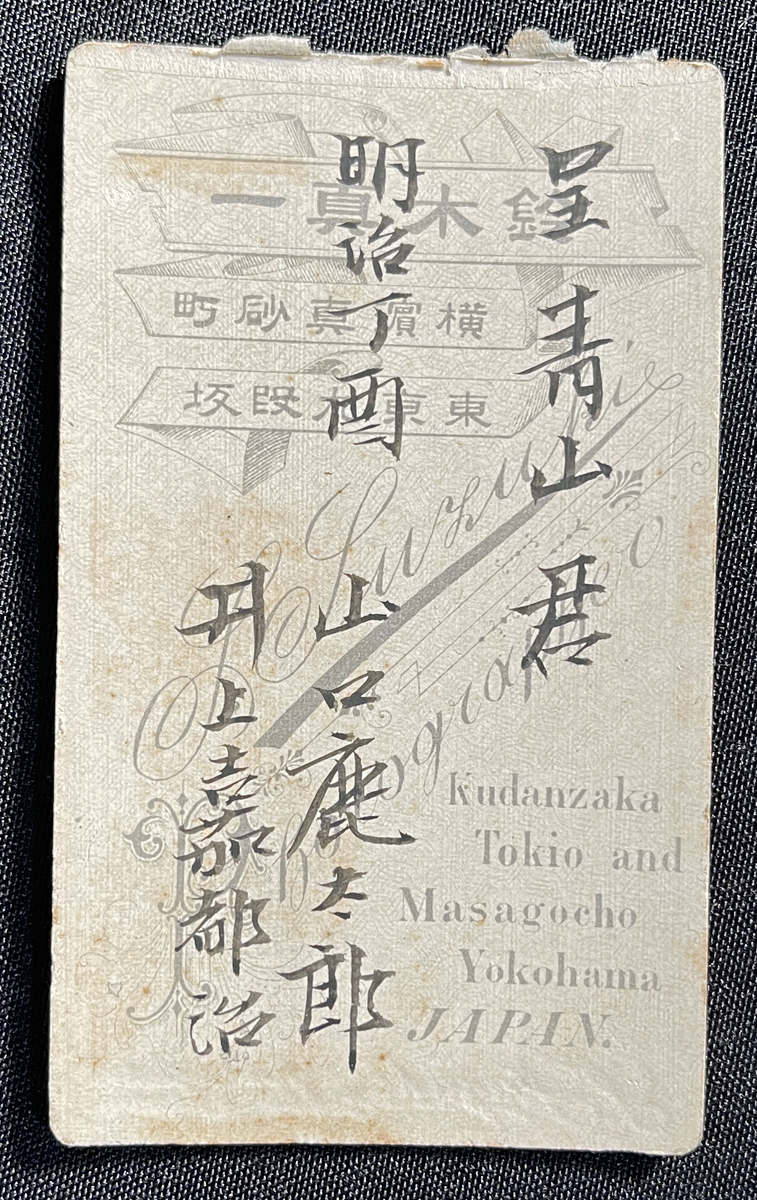 呈 青山 君
明治丁酉
山口鹿太郎
井上嘉都治
鈴木真一
横濱真砂町
東京九段坂
Kudanzaka
Tokio and
Masagocho
Yokohama
JAPAN.